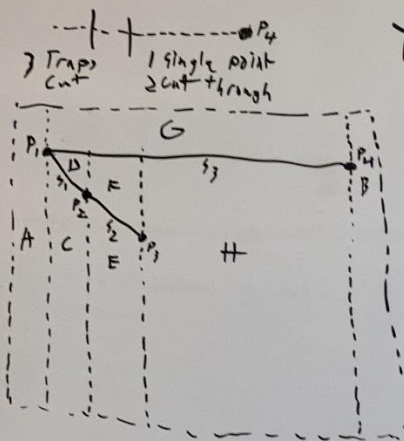 P4
3 Traps
cut
1 single point
2 cut through
G
P1
D
S1
F
S3
P4
B
P2
A
C
S2
P3
E
H